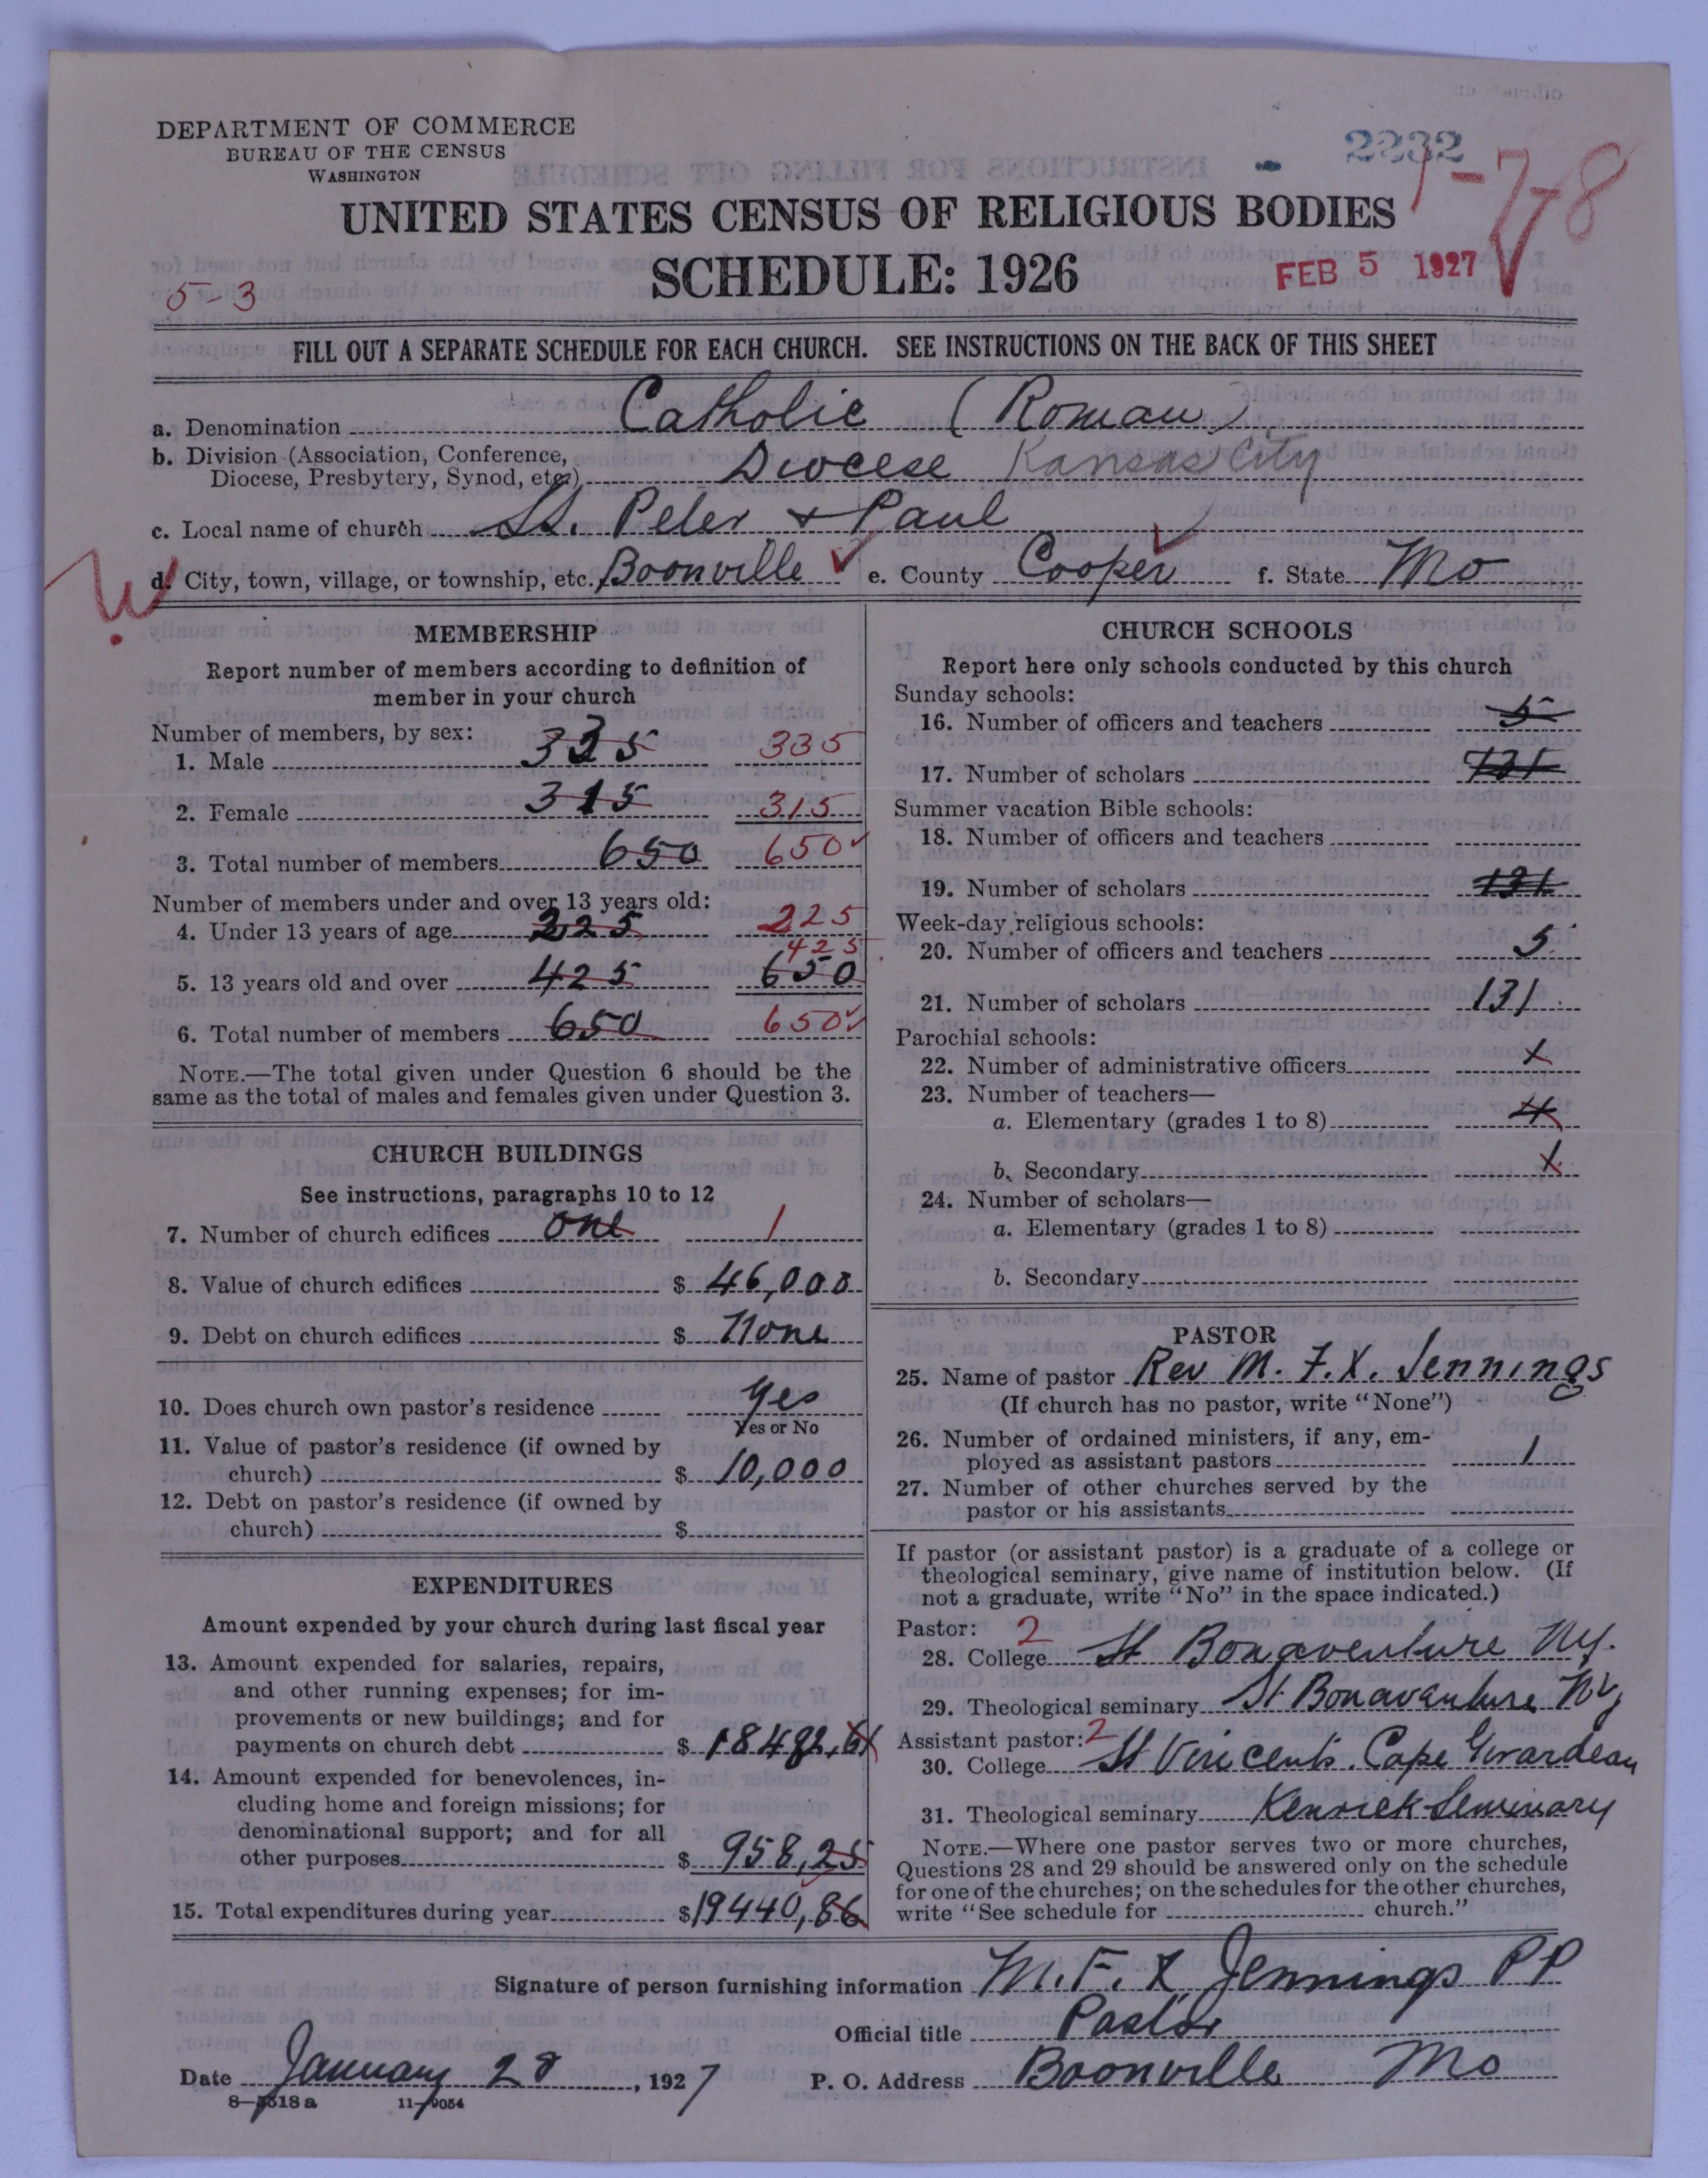 DEPARTMENT OF COMMERCE
BUREAU OF THE CENSUS
WASHINGTON
2232
1-7-8
UNITED STATES CENSUS OF RELIGIOUS BODIES
SCHEDULE: 1926
FEB 5 1927
5-3
FILL OUT A SEPARATE SCHEDULE FOR EACH CHURCH. SEE INSTRUCTIONS ON THE BACK OF THIS SHEET
a. Denomination Catholic (Roman)
b. Division (Association, Conference,
Diocese, Presbytery, Synod, etc.) Diocese Kansas City
c. Local name of church St. Peter + Paul
d. City, town, village, or township, etc. Boonville e. County Cooper f. State Mo
W
MEMBERSHIP
Report number of members according to definition of
member in your church
Number of members, by sex:
1. Male 335 335
2. Female 315 315
3. Total number of members 650 650
Number of members under and over 13 years old:
4. Under 13 years of age 225 225
425
5. 13 years old and over 425 650
6. Total number of members 650 650
NOTE.—The total given under Question 6 should be the
same as the total of males and females given under Question 3.
CHURCH BUILDINGS
See instructions, paragraphs 10 to 12
7. Number of church edifices one 1
8. Value of church edifices $ 46,000
9. Debt on church edifices $ None
10. Does church own pastor's residence yes
Yes or No
11. Value of pastor's residence (if owned by
church) $ 10,000
12. Debt on pastor's residence (if owned by
church) $
EXPENDITURES
Amount expended by your church during last fiscal year
13. Amount expended for salaries, repairs,
and other running expenses; for im-
provements or new buildings; and for
payments on church debt $ 18482,61
14. Amount expended for benevolences, in-
cluding home and foreign missions; for
denominational support; and for all
other purposes $ 958,25
15. Total expenditures during year $ 19440,86
CHURCH SCHOOLS
Report here only schools conducted by this church
Sunday schools:
16. Number of officers and teachers 5
17. Number of scholars 131
Summer vacation Bible schools:
18. Number of officers and teachers
19. Number of scholars 131
Week-day religious schools:
20. Number of officers and teachers 5
21. Number of scholars 131
Parochial schools:
22. Number of administrative officers x
23. Number of teachers—
a. Elementary (grades 1 to 8) 4
b. Secondary x
24. Number of scholars—
a. Elementary (grades 1 to 8)
b. Secondary
PASTOR
25. Name of pastor Rev M. F. X. Jennings
(If church has no pastor, write "None")
26. Number of ordained ministers, if any, em-
ployed as assistant pastors 1
27. Number of other churches served by the
pastor or his assistants
If pastor (or assistant pastor) is a graduate of a college or
theological seminary, give name of institution below. (If
not a graduate, write "No" in the space indicated.)
Pastor: 2
28. College St Bonaventure N.Y.
29. Theological seminary St Bonavanture NY
Assistant pastor: 2
30. College St Vincent's. Cape Girardeau
31. Theological seminary Kenrick Seminary
NOTE.—Where one pastor serves two or more churches,
Questions 28 and 29 should be answered only on the schedule
for one of the churches; on the schedules for the other churches,
write "See schedule for church."
Signature of person furnishing information M. F. X Jennings PP
Official title Pastor
Date January 28, 1927 P. O. Address Boonville Mo
8—5518 a 11—9054